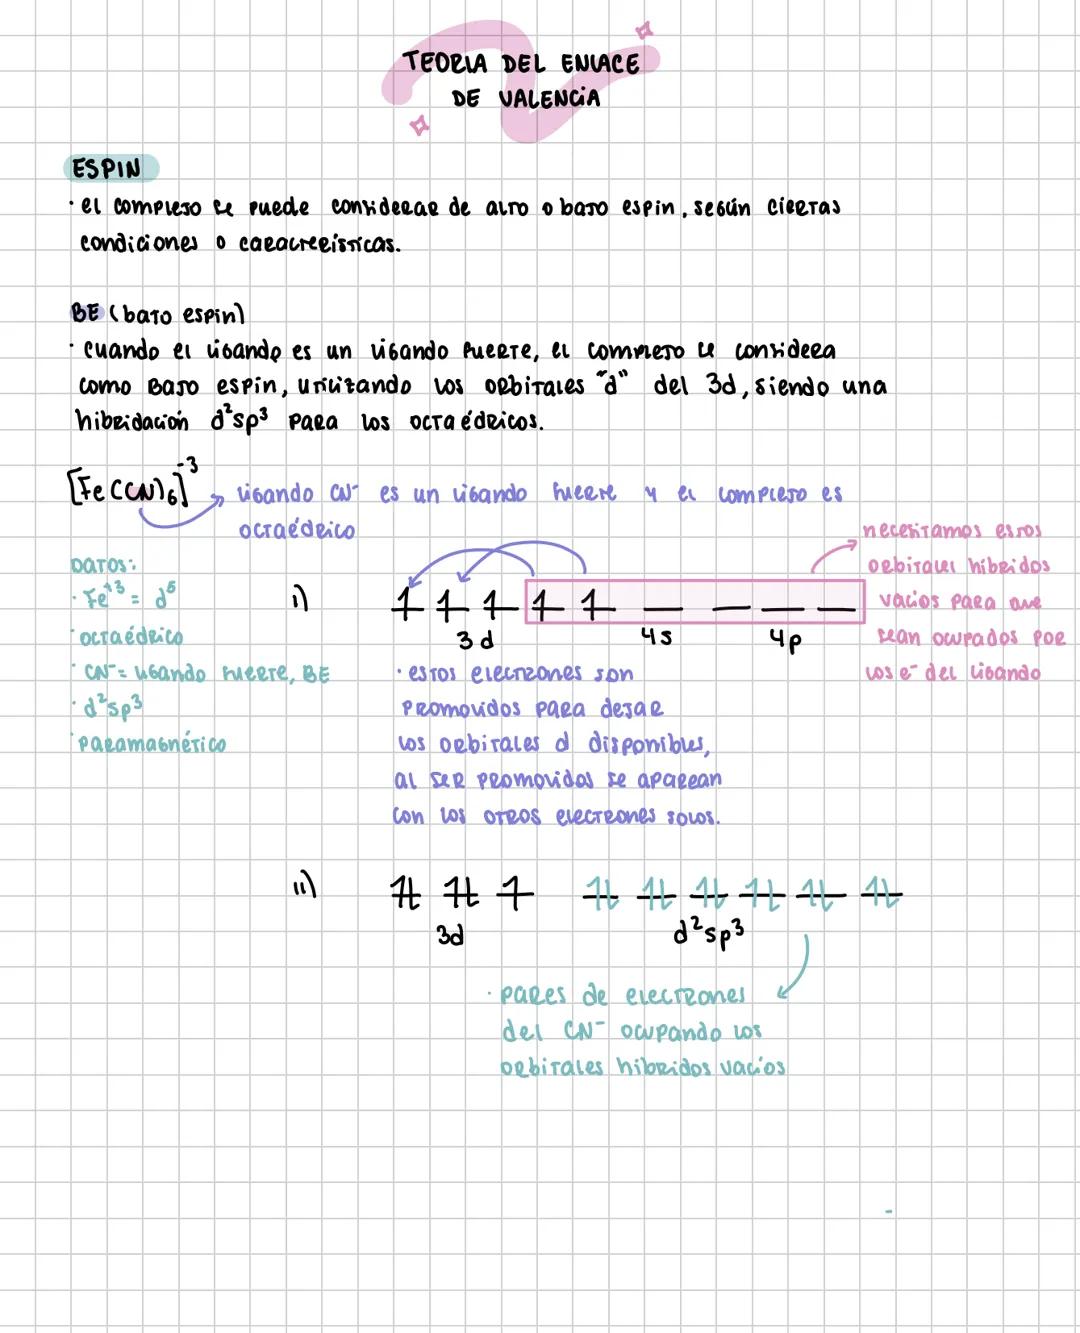 TEORIA DEL ENLACE
DE VALENCIA
ESPIN
· el complejo se puede considerar de alto o bajo espin, según ciertas
condiciones o características.
BE (bajo espin)
· Cuando el ligando es un ligando fuerte, el complejo se considera
como bajo espin, utilizando los orbitales "d" del 3d, siendo una
hibridación d²sp³ para los octaédricos.
[Fe(CN)₆]⁻³
ligando CN⁻ es un ligando fuerte y el complejo es
octaédrico
necesitamos estos
orbitales hibridos
vacios para que
sean ocupados por
los e⁻ del ligando
DATOS:
· Fe⁺³ = d⁵
· octaédrico
· CN⁻ = ligando fuerte, BE
· d²sp³
· paramagnético
i)
3d 4s 4p
· estos electrones son
promovidos para dejar
los orbitales d disponibles,
al ser promovidos se aparean
con los otros electrones solos.
ii)
3d d²sp³
· pares de electrones
del CN⁻ ocupando los
orbitales hibridos vacíos